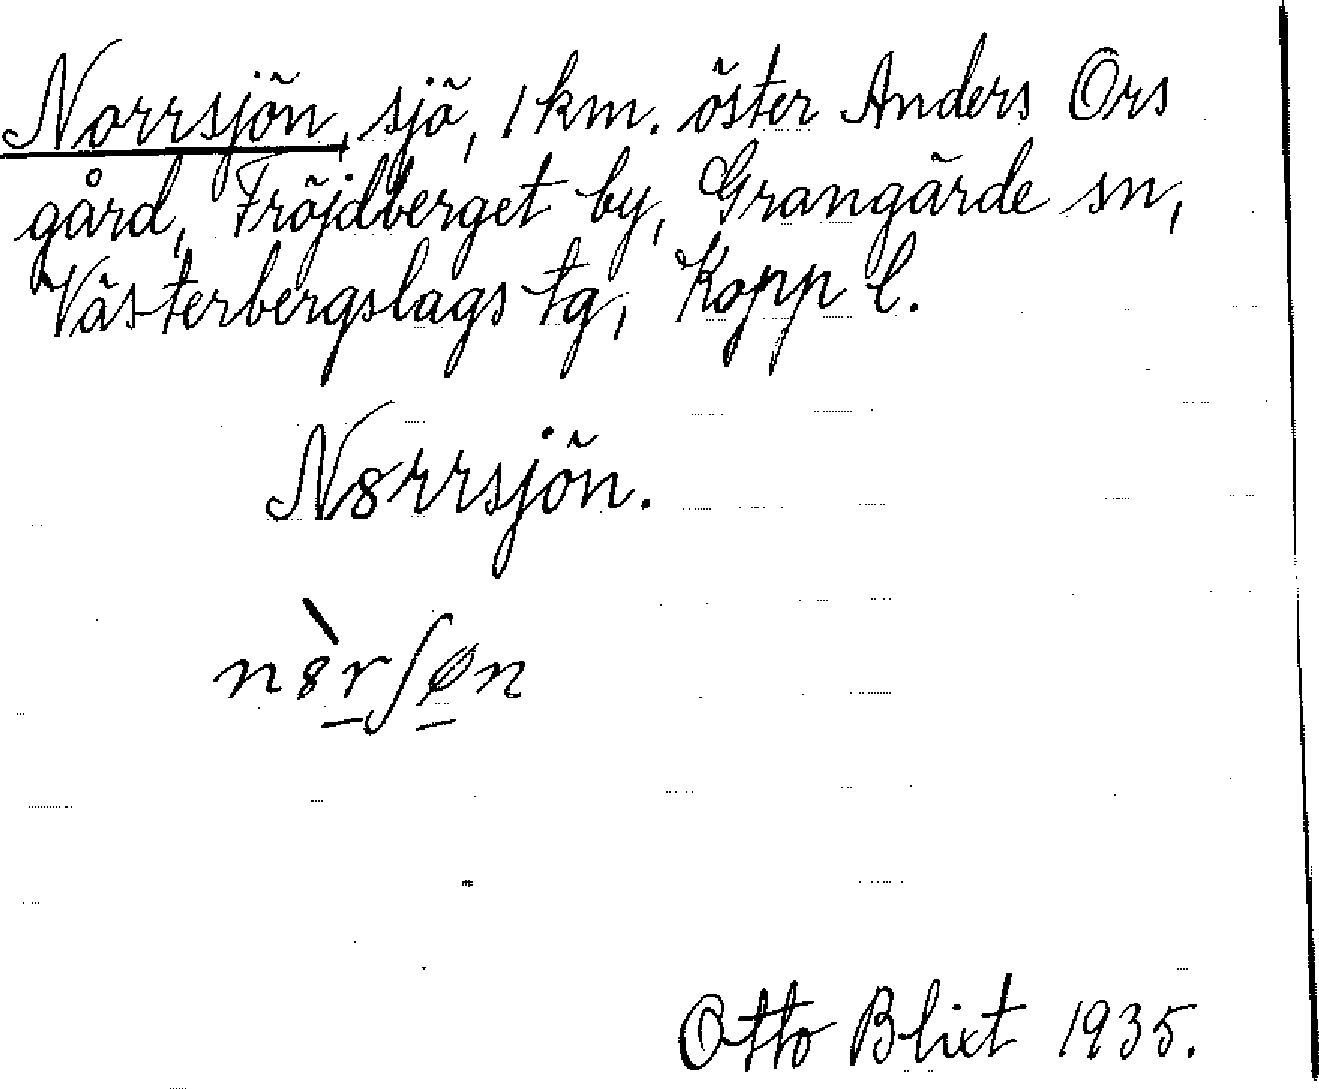 Norrsjön, sjö, 1 km. öster Anders Ors
gård, Fröjdberget by, Grangärde sn,
Västerbergslags tg, Kopp l.
N8rrsjön.
n8̀rʃøn
Otto Blixt 1935.